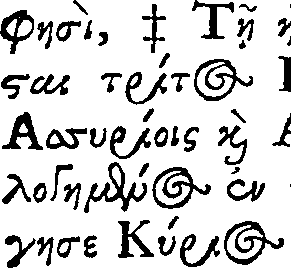 φησὶ, ‡ Τῇ
ϛαι τρίτος
Ασσυρίοις ϗ̀
λογημένος ἐν
γησε Κύριος